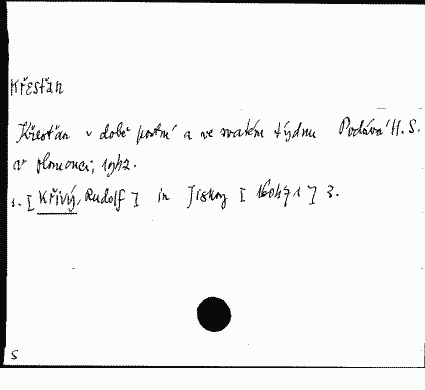 Křesťan
Křesťan v době postní a ve svatém týdnu Podává H. S.
V Olomouci, 1942.
1. [Křivý, Rudolf] in Jiskry [160471] 3.
S